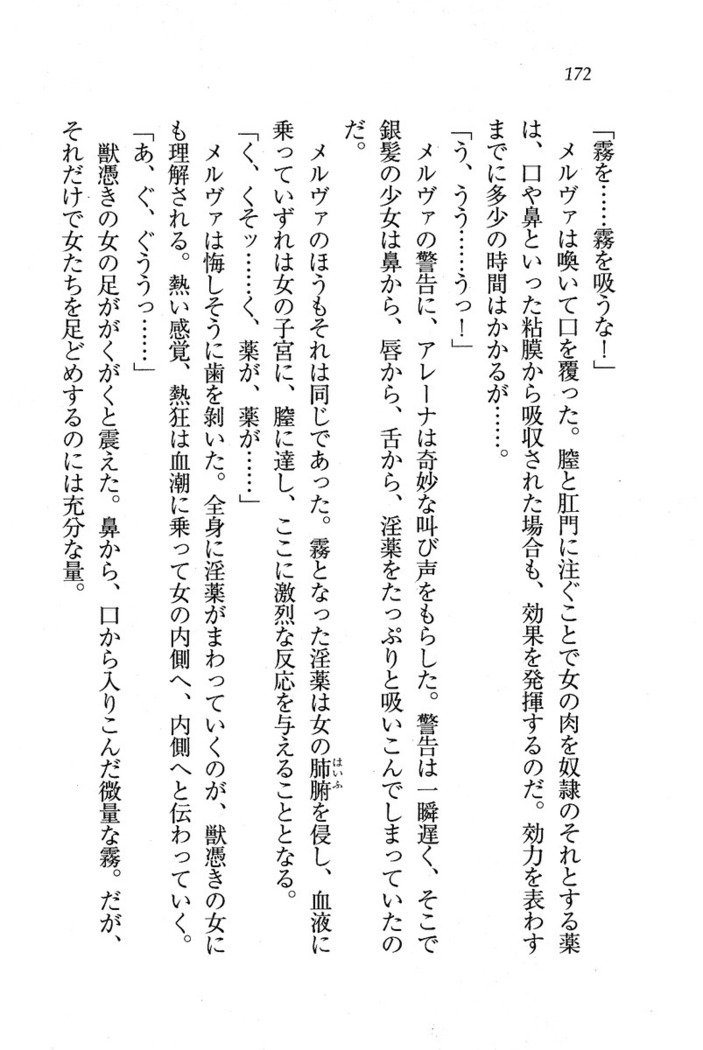 172
「霧を……霧を吸うな！」
　メルヴァは喚いて口を覆った。膣と肛門に注ぐことで女の肉を奴隷のそれとする薬
は、口や鼻といった粘膜から吸収された場合も、効果を発揮するのだ。効力を表わす
までに多少の時間はかかるが……。
「う、うう……うっ！」
　メルヴァの警告に、アレーナは奇妙な叫び声をもらした。警告は一瞬遅く、そこで
銀髪の少女は鼻から、唇から、舌から、淫薬をたっぷりと吸いこんでしまっていたの
だ。
　メルヴァのほうもそれは同じであった。霧となった淫薬は女の肺腑（はいふ）を侵し、血液に
乗っていずれは女の子宮に、膣に達し、ここに激烈な反応を与えることとなる。
「く、くそッ……く、薬が、薬が……」
　メルヴァは悔しそうに歯を剝いた。全身に淫薬がまわっていくのが、獣憑きの女に
も理解される。熱い感覚、熱狂は血潮に乗って女の内側へ、内側へと伝わっていく。
「あ、ぐ、ぐううっ……」
　獣憑きの女の足ががくがくと震えた。鼻から、口から入りこんだ微量な霧。だが、
それだけで女たちを足どめするのには充分な量。